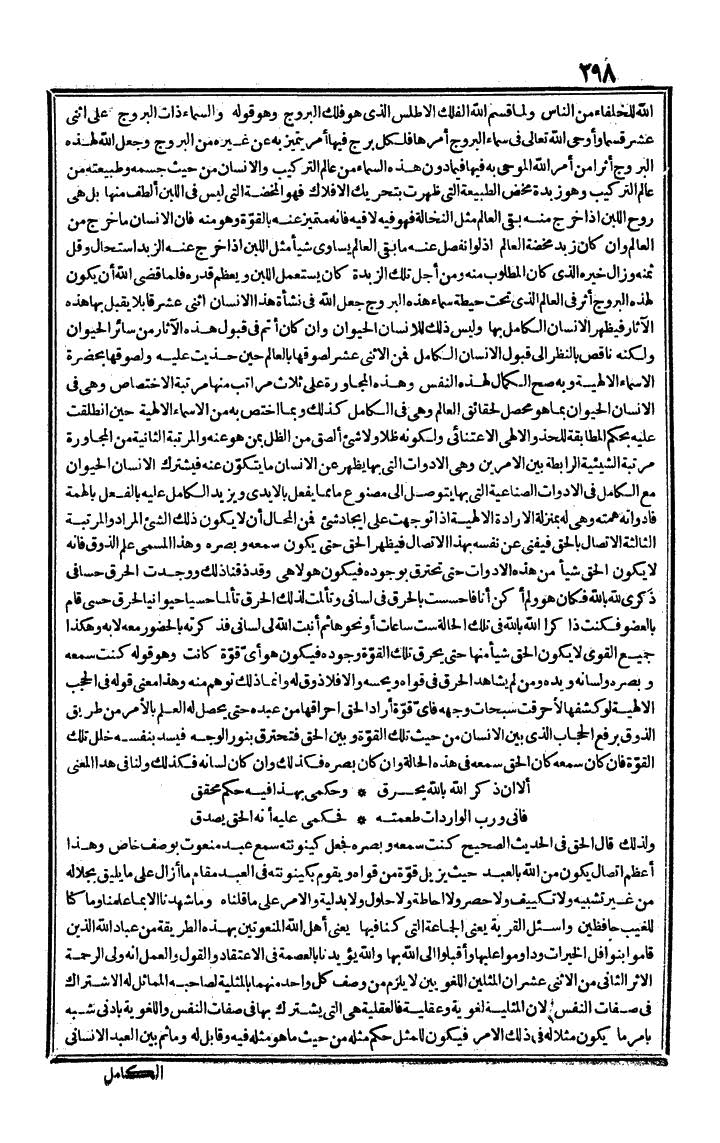 ٢٩٨
الله للخلفاء من الناس ولما قسم الله الفلك الاطلس الذى هو فلك البروج وهو قوله والسماء ذات البروج على اثنى
عشر قسما وأوحى الله تعالى فى سماء البروج أمرها فلكل برج فيها أمر يتميز به عن غيره من البروج وجعل الله لهذه
البروج أثرا من أمر الله الموحى به فيها فيما دون هذه السماء من عالم التركيب والانسان من حيث جسمه وطبيعته من
عالم التركيب وهو زبدة مخض الطبيعة التى ظهرت بتحريك الافلاك فهو المخضة التى ليس فى اللبن ألطف منها بل هى
روح اللبن اذا خرج منه بقى العالم مثل النخالة فهو فيه لا فيه فانه متميز عنه بالقوّة وهو منه فان الانسان ما خرج من
العالم وان كان زبد مخضة العالم اذ لو انفصل عنه ما بقى العالم يساوى شيأ مثل اللبن اذا خرج عنه الزبد استحال وقل
ثمنه وزال خيره الذى كان المطلوب منه ومن أجل تلك الزبدة كان يستعمل اللبن ويعظم قدره فلما قضى الله أن يكون
لهذه البروج أثر فى العالم الذى تحت حيطة سماء هذه البروج جعل الله فى نشأة هذا الانسان اثنى عشر قابلا يقبل بها هذه
الآثار فيظهر الانسان الكامل بها وليس ذلك للانسان الحيوان وان كان أتم فى قبول هذه الآثار من سائر الحيوان
ولكنه ناقص بالنظر الى قبول الانسان الكامل فمن الاثنى عشر لصوقها بالعالم حين حذيت عليه ولصوقها بحضرة
الاسماء الالهية وبه صح الكمال لهذه النفس وهذه المجاورة على ثلاث مراتب منها مرتبة الاختصاص وهى فى
الانسان الحيوان بما هو محصل لحقائق العالم وهى فى الكامل كذلك وبما اختص به من الاسماء الالهية حين انطلقت
عليه بحكم المطابقة للحذو الالهى الاعتنائى ولكونه ظلا ولا شئ ألصق من الظل بمن هو عنه والمرتبة الثانية من المجاورة
مرتبة الشيئية الرابطة بين الامرين وهى الادوات التى بها يظهر عن الانسان ما يتكوّن عنه فيشترك الانسان الحيوان
مع الكامل فى الادوات الصناعية التى بها يتوصل الى مصنوع ما مما يفعل بالايدى ويزيد الكامل عليه بالفعل بالهمة
فادواته همته وهى له بمنزلة الارادة الالهية اذا توجهت على ايجاد شئ فمن المحال أن لا يكون ذلك الشئ المراد والمرتبة
الثالثة الاتصال بالحق فيفنى عن نفسه بهذا الاتصال فيظهر الحق حتى يكون سمعه وبصره وهذا المسمى علم الذوق فانه
لا يكون الحق شيأ من هذه الادوات حتى تحترق بوجوده فيكون هو لا هى وقد ذقنا ذلك ووجدت الحرق حسا فى
ذكرى لله بالله فكان هو ولم أكن أنا فأحسست بالحرق فى لسانى وتألمت لذلك الحرق تألما حسيا حيوانيا لحرق حسى قام
بالعضو فكنت ذاكرا الله بالله فى تلك الحالة ست ساعات أو نحوها ثم أنبت الله لى لسانى فذكرته بالحضور معه لا به وهكذا
جميع القوى لا يكون الحق شيأ منها حتى يحرق تلك القوّة وجوده فيكون هو أىّ قوّة كانت وهو قوله كنت سمعه
وبصره ولسانه ويده ومن لم يشاهد الحرق فى قواه ويحسه والا فلا ذوق له وانما ذلك توهم منه وهذا معنى قوله فى الحجب
الالهية لو كشفها لأحرقت سبحات وجهه فأىّ قوّة أراد الحق احراقها من عبده حتى يحصل له العلم بالأمر من طريق
الذوق يرفع الحجاب الذى بين الانسان من حيث تلك القوّة وبين الحق فتحترق بنور الوجه فيسد بنفسه خلل تلك
القوّة فان كان سمعه كان الحق سمعه فى هذه الحالة وان كان بصره فكذلك وان كان لسانه فكذلك ولنا فى هذا المعنى
ألا ان ذكر الله بالله يحرق * وحكمى بهذا فيه حكم محقق
فانى ورب الواردات طعمته * فحكمى عليه أنه الحق يصدق
ولذلك قال الحق فى الحديث الصحيح كنت سمعه وبصره فجعل كينونته سمع عبد منعوت بوصف خاص وهذا
أعظم اتصال يكون من الله بالعبد حيث يزيل قوّة من قواه ويقوم بكينونته فى العبد مقام ما أزال على ما يليق بجلاله
من غير تشبيه ولا تكييف ولا حصر ولا احاطة ولا حلول ولا بدلية والامر على ما قلناه وما شهدنا الا بما علمنا وما كنا
للغيب حافظين واسئل القرية يعنى الجماعة التى كنا فيها يعنى أهل الله المنعوتين بهذه الطريقة من عباد الله الذين
قاموا بنوافل الخيرات وداوموا عليها وأقبلوا الى الله بها والله يؤيدنا بالعصمة فى الاعتقاد والقول والعمل انه ولى الرحمة
الاثر الثانى من الاثنى عشر ان المثلين اللغويين لا يلزم من وصف كل واحد منهما بالمثلية لصاحبه المماثل له الاشتراك
فى صفات النفس لان المثلية لغوية وعقلية فالعقلية هى التى يشترك بها فى صفات النفس واللغوية بادنى شبه
بامر ما يكون مثلا له فى ذلك الامر فيكون للمثل حكم مثله من حيث ما هو مثله فيه وقابل له وما ثم بين العبد الانسانى
الكامل